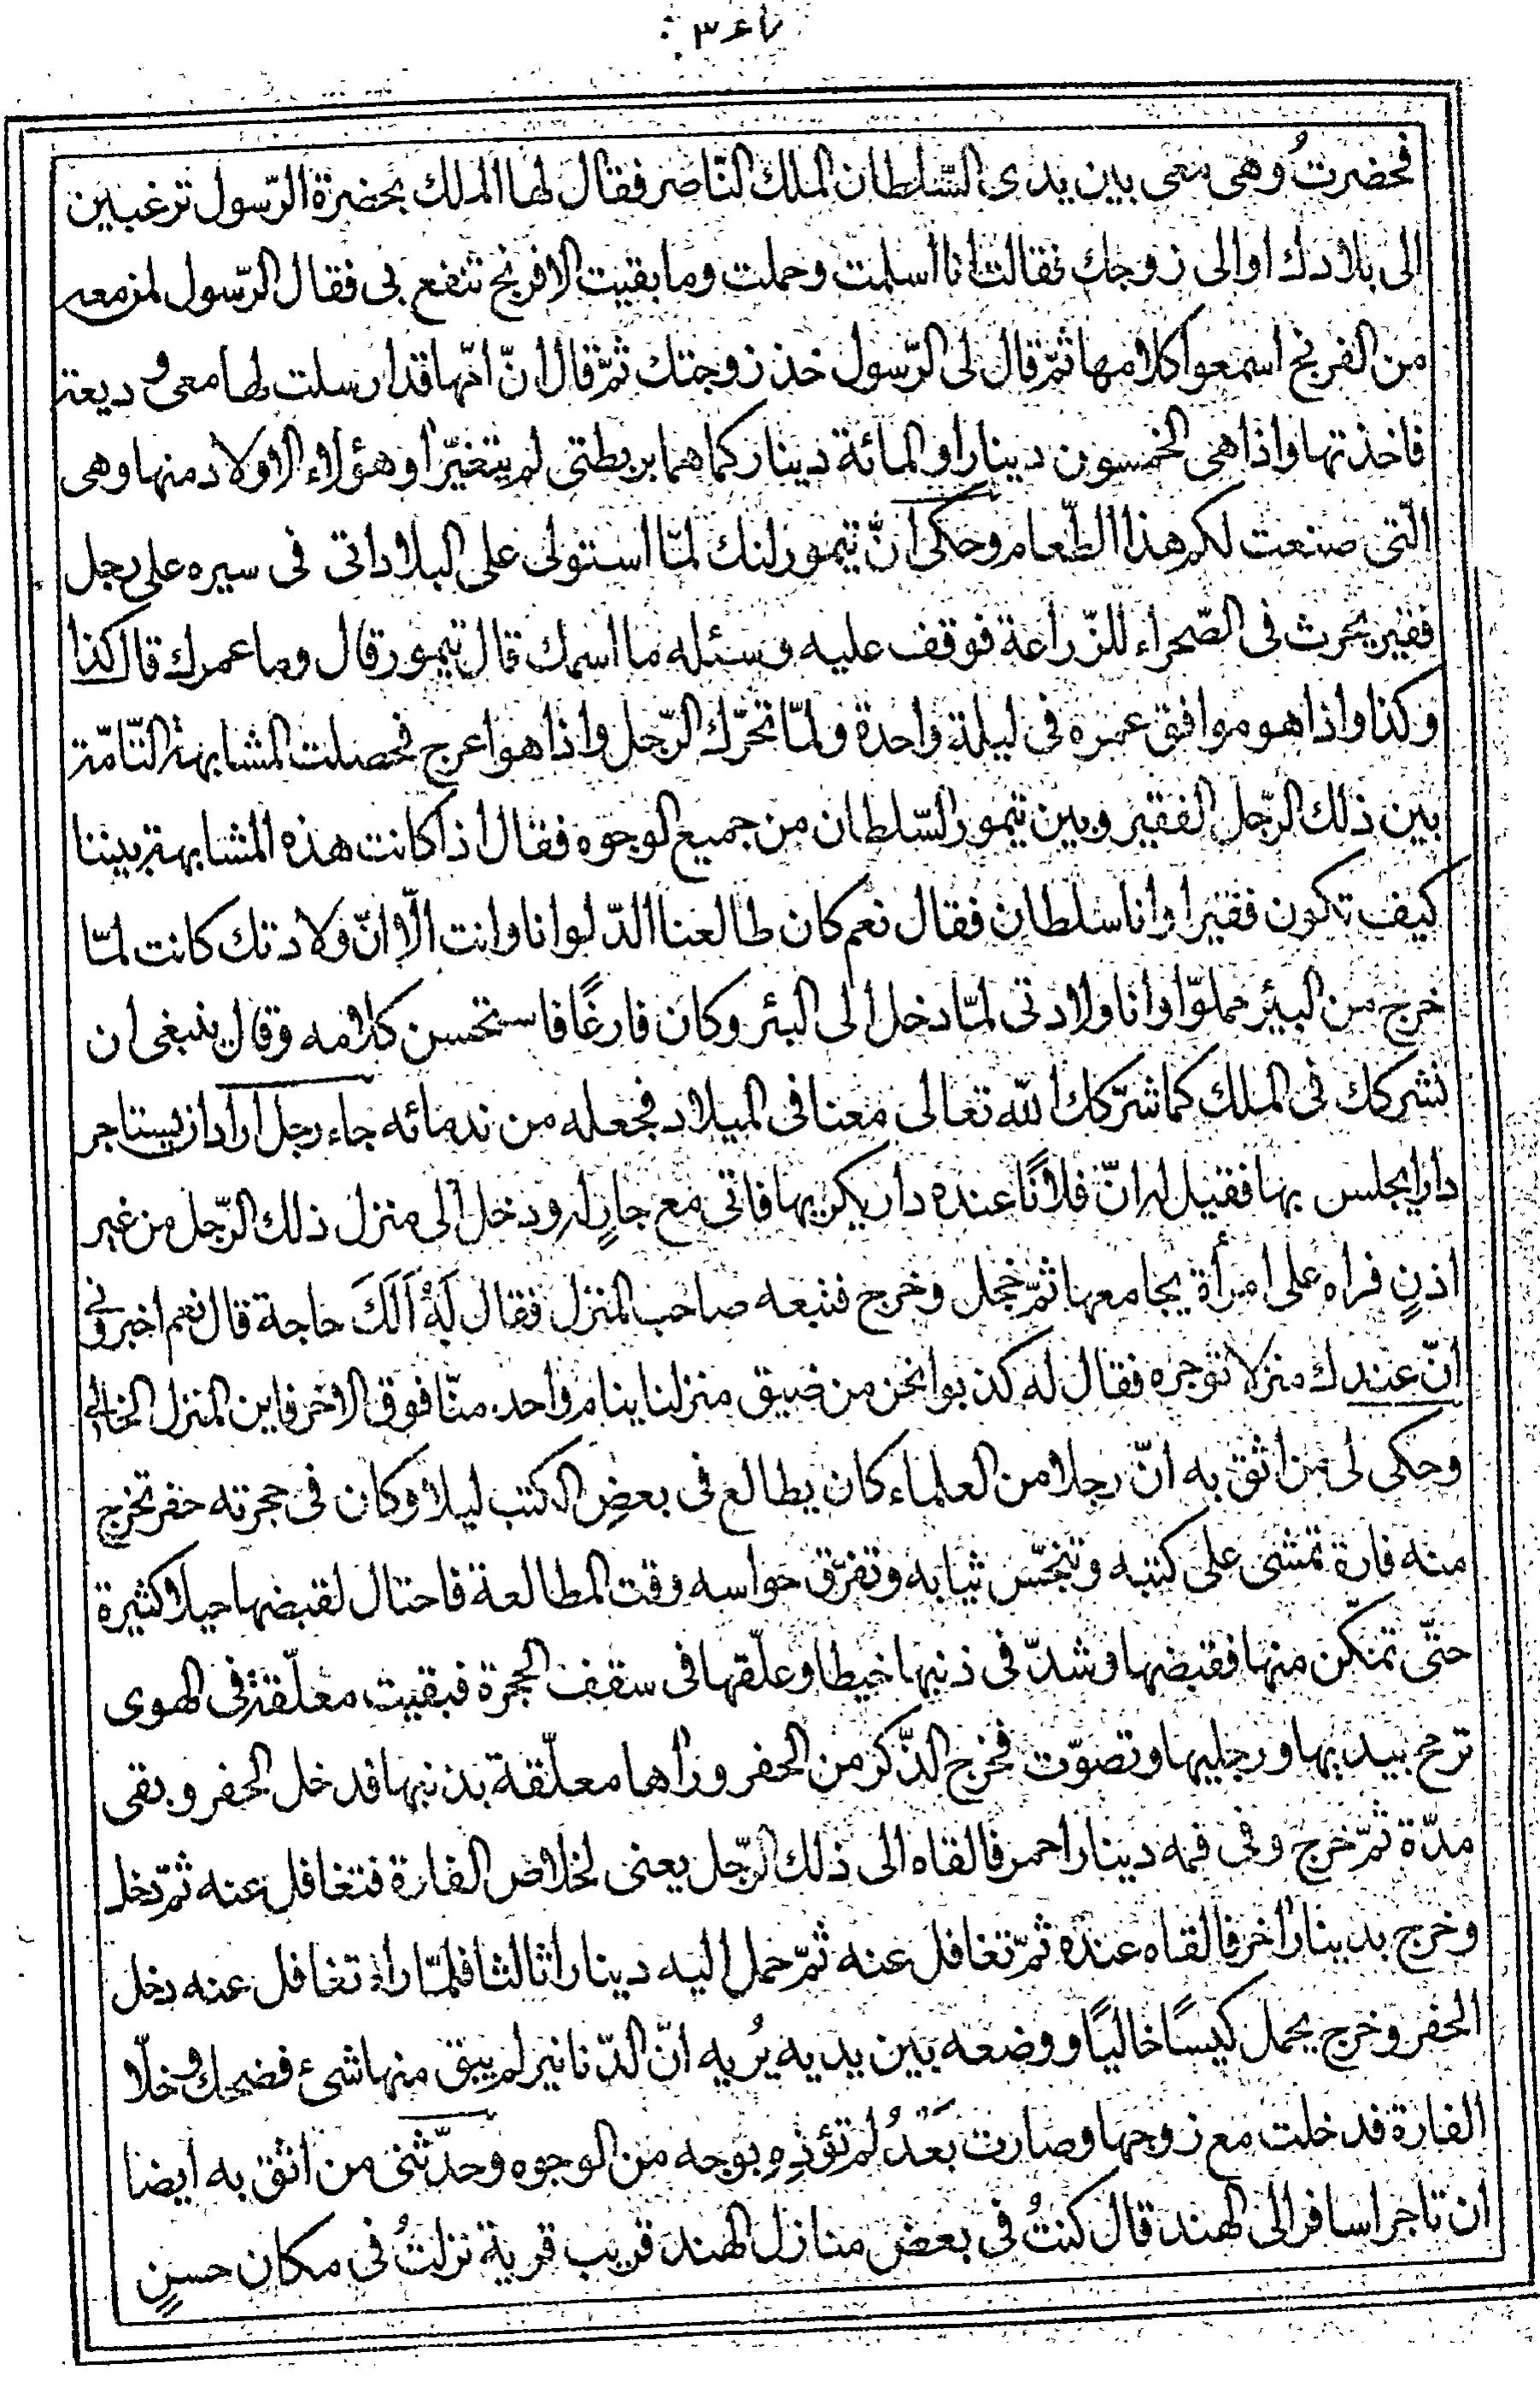 فحضرتُ وهى معى بين يدى السّلطان الملك النّاصر فقال لها الملك بحضرة الرّسول ترغبين
الى بلادك او الى زوجك فقالت انا اسلمت وحملت وما بقيت الافرنج تنتفع بى فقال الرّسول لمن معه
من الفرنج اسمعوا كلامها ثمّ قال لى الرّسول خذ زوجتك ثمّ قال انّ امّها قد ارسلت لها معى وديعة
فاخذتها واذا هى الخمسون دينارا والمائة دينار كما هما بربطتى لم يتغيّرا وهؤلاء الاولاد منها وهى
الّتى صنعت لكم هذا الطّعام وحكى انّ تيمور لنك لمّا استولى على البلاد اتى فى سيره على رجل
فقير يحرث فى الصّحراء للزّراعة فوقف عليه وسئله ما اسمك قال تيمور قال وما عمرك قال كذا
وكذا واذا هو موافق عمره فى ليلة واحدة ولمّا تحرّك الرّجل واذا هو اعرج فحصلت المشابهة التّامّة
بين ذلك الرّجل الفقير وبين تيمور السّلطان من جميع الوجوه فقال اذا كانت هذه المشابهة بيننا
كيف تكون فقيرا وانا سلطان فقال نعم كان طالعنا الدّلو انا وانت الّا انّ ولادتك كانت لمّا
خرج من البئر مملوّا وانا ولادتى لمّا دخل الى البئر وكان فارغًا فاستحسن كلامه وقال ينبغى ان
نشركك فى الملك كما شرّكك الله تعالى معنا فى الميلاد فجعله من ندمائه جاء رجل اراد ان يستاجر
دارا يجلس بها فقيل له انّ فلانًا عنده دار يكريها فاتى مع جارٍ له ودخل الى منزل ذلك الرّجل من غير
اذنٍ فراه على امرأة يجامعها ثمّ خجل وخرج فتبعه صاحب المنزل فقال لَهُ اَلَكَ حاجة قال نعم اخبرونى
انّ عندك منزلا توجره فقال له كذبوا نحن من ضيق منزلنا ينام واحد منّا فوق الاخر فاين المنزل الخالى
وحكى لى من اثق به انّ رجلا من العلماء كان يطالع فى بعض الكتب ليلا وكان فى حجرته حفر تخرج
منه فارة تمشى على كتبه وتنجّس ثيابه وتفرّق حواسه وقت المطالعة فاحتال لقبضها حيلا كثيرة
حتّى تمكّن منها فقبضها وشدّ فى ذنبها خيطا وعلّقها فى سقف الحجرة فبقيت معلّقة فى الهوى
ترمح بيديها ورجليها وتصوّت فخرج الذّكر من الحفر وراها معلّقة بذنبها فدخل الحفر وبقى
مدّة ثمّ خرج وفى فمه دينار احمر فالقاه الى ذلك الرّجل يعنى لخلاص الفارة فتغافل عنه ثمّ دخل
وخرج بدينار اخر فالقاه عنده ثمّ تغافل عنه ثمّ حمل اليه دينارا ثالثا فلمّا راه تغافل عنه دخل
الحفر وخرج يحمل كيسًا خاليًا ووضعه بين يديه يُريه انّ الدّنانير لم يبق منها شىء فضحك وخلّا
الفارة فدخلت مع زوجها وصارت بَعْدُ لم تؤذِهِ بوجه من الوجوه وحدّثنى من اثق به ايضا
ان تاجرا سافر الى الهند قال كنتُ فى بعض منازل الهند قريب قرية نزلتُ فى مكان حسنٍ